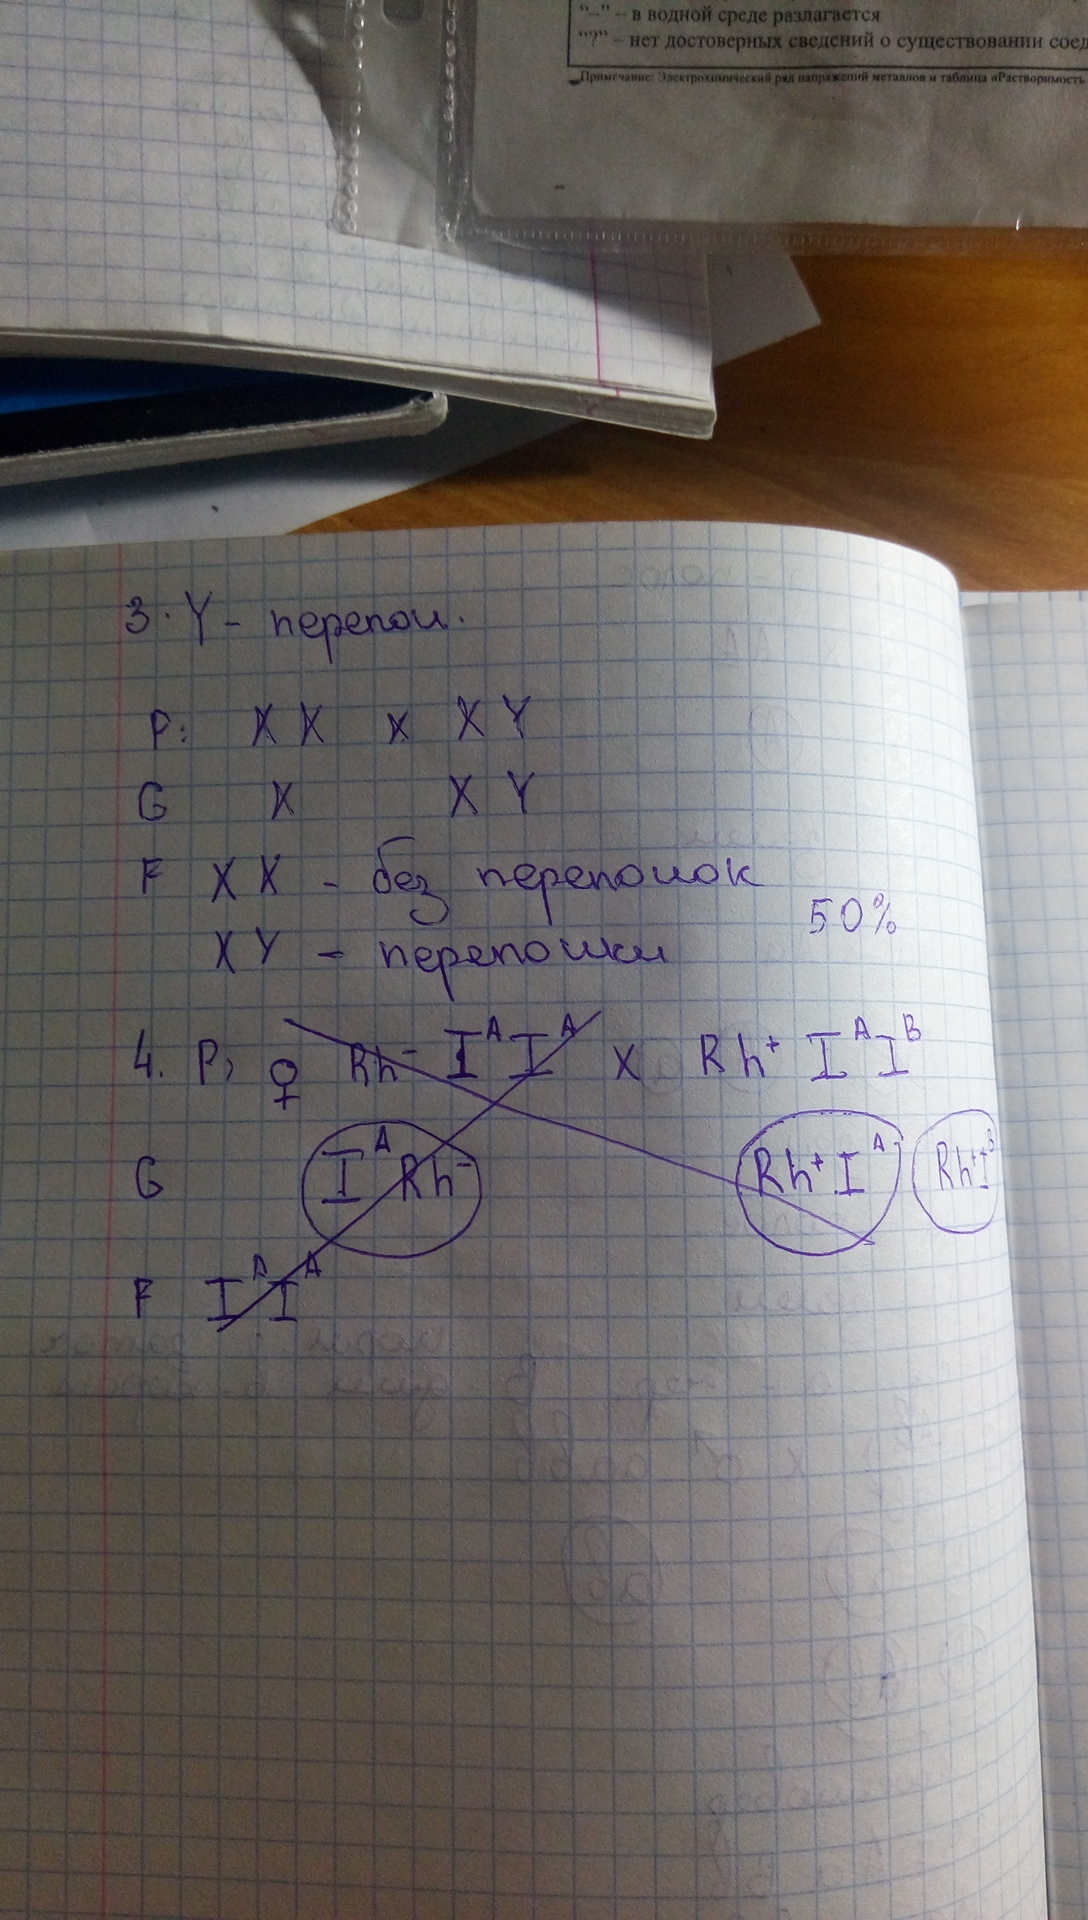 “–” – в водной среде разлагается
“?” – нет достоверных сведений о существовании соед
Примечание: Электрохимический ряд напряжений металлов и таблица «Растворимость
3. Y – перепон.
P: X X x X Y
G X X Y
F X X – без перепонок
50%
X Y – перепонки
4. P: ♀ Rh⁻ IᴬIᴬ x Rh⁺ IᴬIᴮ
G IᴬRh⁻ Rh⁺Iᴬ Rh⁺Iᴮ
F IᴬIᴬ